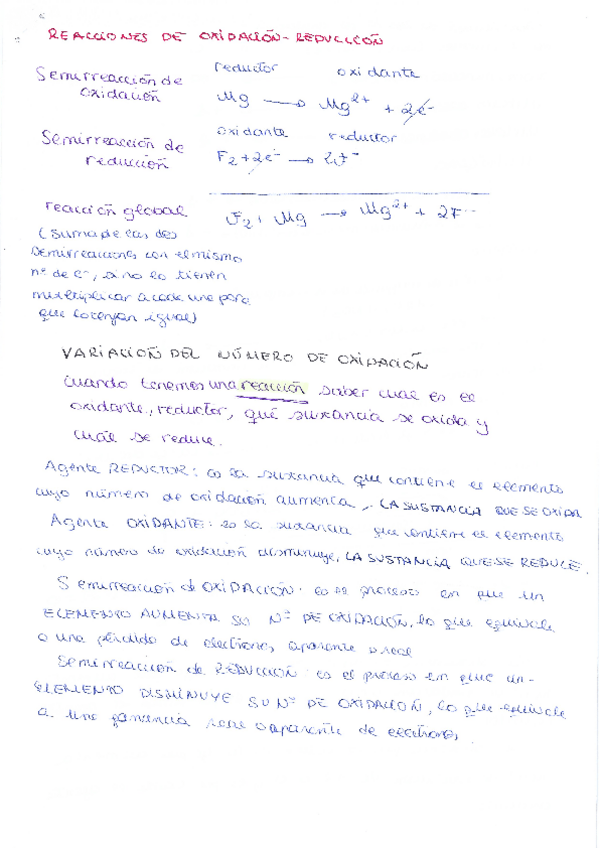 REACCIONES DE OXIDACIÓN-REDUCCIÓN
reductor oxidante
Semirreacción de oxidación
Mg → Mg2+ + 2e-
oxidante reductor
Semirreacción de reducción
F2 + 2e- → 2F-
reacción global
F2 + Mg → Mg2+ + 2F-
(suma de las dos
semirreacciones con el mismo
nº de e-, si no lo tienen
multiplicar a cada una para
que lo tengan igual)
VARIACIÓN DEL NÚMERO DE OXIDACIÓN
Cuando tenemos una reacción saber cual es el
oxidante, reductor, qué sustancia se oxida y
cuál se reduce.
Agente REDUCTOR: es la sustancia que contiene el elemento
cuyo número de oxidación aumenta, LA SUSTANCIA QUE SE OXIDA
Agente OXIDANTE: es la sustancia que contiene el elemento
cuyo número de oxidación disminuye, LA SUSTANCIA QUE SE REDUCE.
Semirreacción de OXIDACIÓN: es el proceso en que un
ELEMENTO AUMENTA SU Nº DE OXIDACIÓN, lo que equivale
a una pérdida de electrones, aparente o real
Semirreacción de REDUCCIÓN: es el proceso en que un
ELEMENTO DISMINUYE SU Nº DE OXIDACIÓN, lo que equivale
a una ganancia real o aparente de electrones.